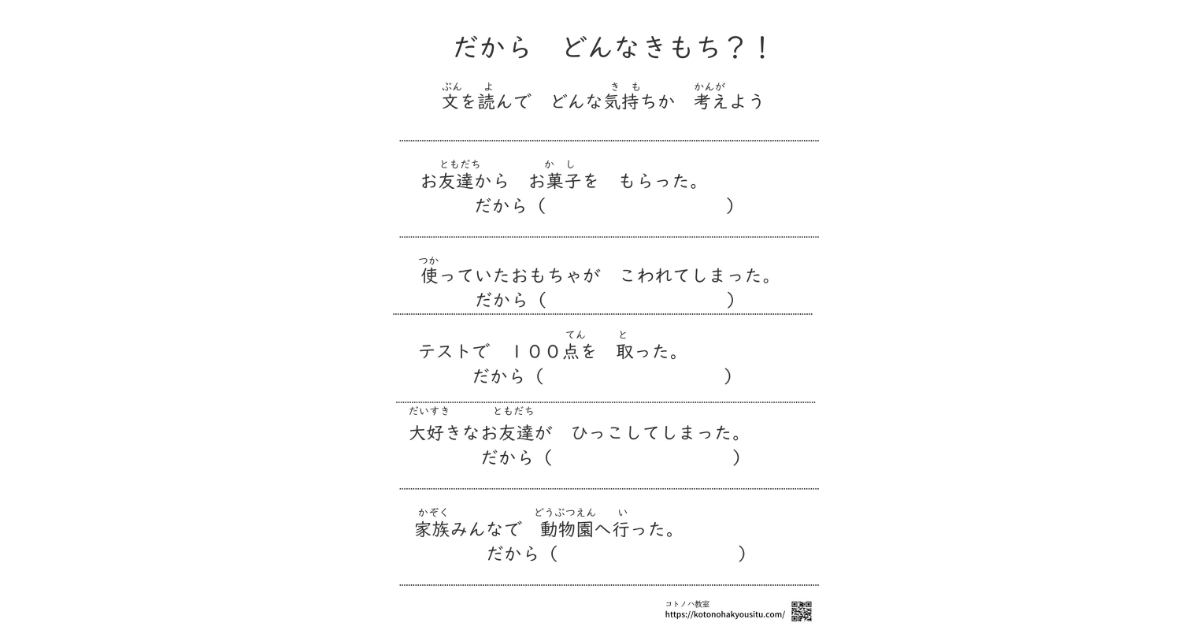 だから　どんなきもち？！
ぶん　よ　き　も　かんが
文を読んで　どんな気持ちか　考えよう
ともだち　か　し
お友達から　お菓子を　もらった。
だから（　　　　　　　　　　）
つか
使っていたおもちゃが　こわれてしまった。
だから（　　　　　　　　　　）
てん　と
テストで　１００点を　取った。
だから（　　　　　　　　　　）
だいすき　ともだち
大好きなお友達が　ひっこしてしまった。
だから（　　　　　　　　　　）
かぞく　どうぶつえん　い
家族みんなで　動物園へ行った。
だから（　　　　　　　　　　）
コトノハ教室
https://kotonohakyousitu.com/